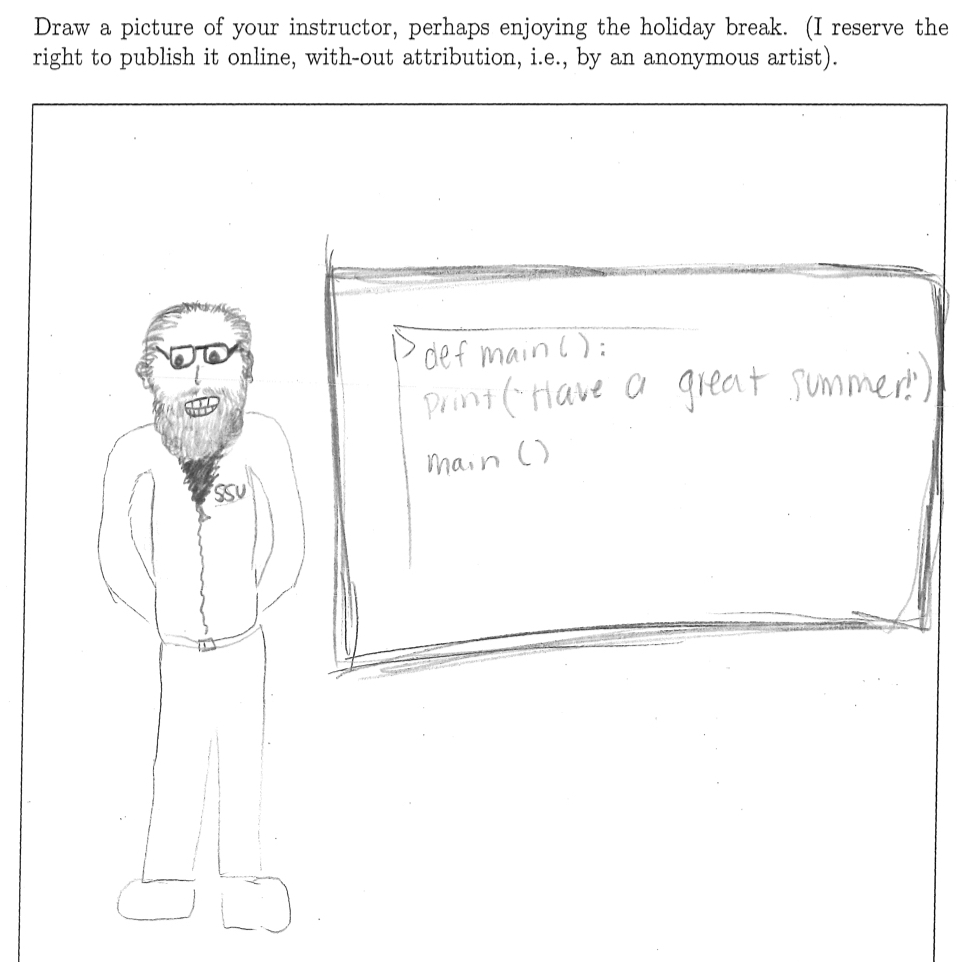 Draw a picture of your instructor, perhaps enjoying the holiday break. (I reserve the
right to publish it online, with-out attribution, i.e., by an anonymous artist).
> def main():
print("Have a great summer!")
main()
SSU